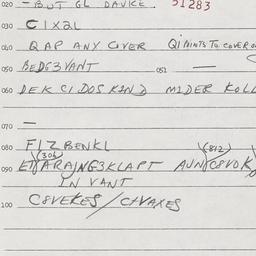 020 - BUT GL DAVKE. 51283
030 C1X2L
040 QAP ANY COVER QI MINTS TO COVER O
050 BEDG3VANT 051 —
060 DEK CI DOS KAND M1DER KOLL
070 —
080 FIZBENKL (812)
(304)
090 ET/ARAJNG3KLAPT AUN/C8VOK
IN VANT
100 C8VEKES / CHVAXES